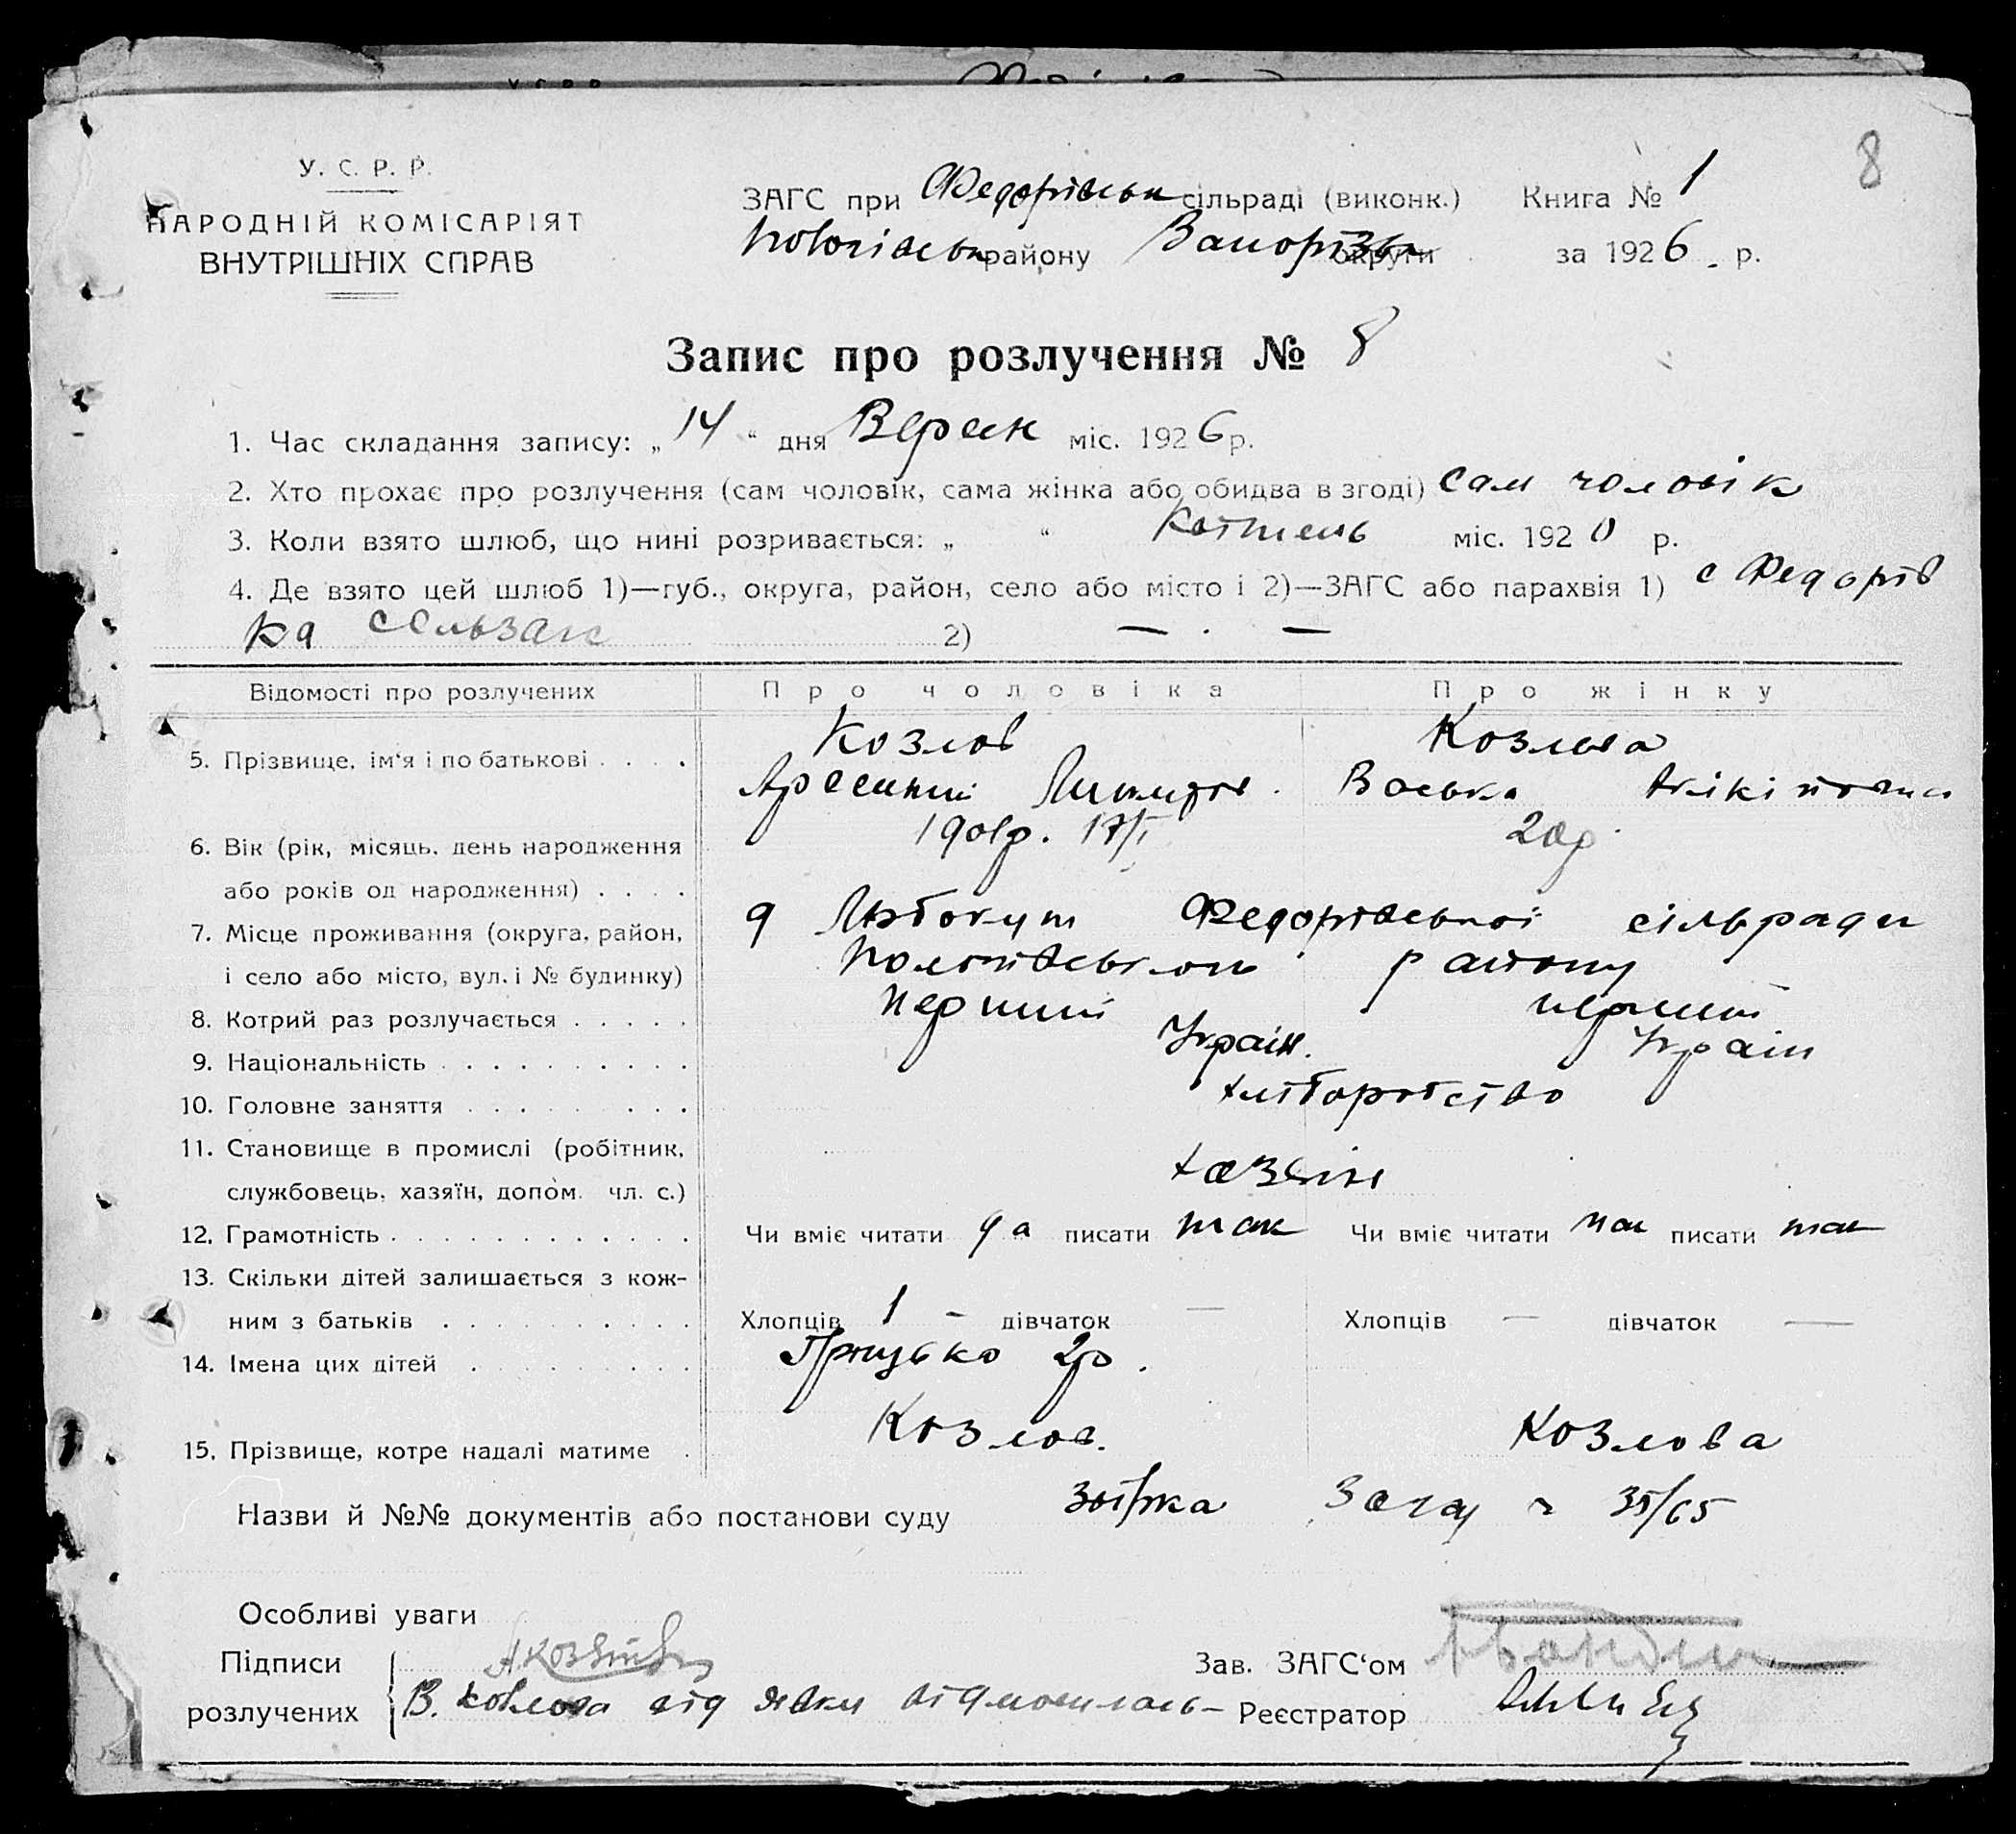 8
У. С. Р. Р.
НАРОДНІЙ КОМІСАРІЯТ
ВНУТРІШНІХ СПРАВ
ЗАГС при Федорівськ сільраді (виконк.) Книга № 1
району округи за 1926 р.
Запис про розлучення № 8
1. Час складання запису: „14“ дня міс. 1926 р.
2. Хто прохає про розлучення (сам чоловік, сама жінка або обидва в згоді) сам чоловік
3. Коли взято шлюб, що нині розривається: „ “ міс. 1920 р.
4. Де взято цей шлюб 1)—губ., округа, район, село або місто і 2)—ЗАГС або парахвія 1) с Федорів
ка 2) — . —
Відомості про розлучених Про чоловіка Про жінку
5. Прізвище, ім'я і по батькові . . . . Козлов Козлова
Васька
6. Вік (рік, місяць, день народження 1901р. 17/I
або років од народження) . . . .
7. Місце проживання (округа, район, Федорівської сільради
і село або місто, вул. і № будинку) району
8. Котрий раз розлучається . . . . . перший перший
9. Національність . . . . . . . . . . Україн. Україн
10. Головне заняття . . . . . . . . . хліборобство
11. Становище в промислі (робітник,
службовець, хазяїн, допом. чл. с.) хазяін
12. Грамотність . . . . . . . . . . . . Чи вміє читати да писати так Чи вміє читати писати так
13. Скільки дітей залишається з кож-
ним з батьків . . . . . . . . . . Хлопців 1 – дівчаток — Хлопців — дівчаток —
14. Імена цих дітей . . . . . . . . . Грицько 2р.
15. Прізвище, котре надалі матиме . Козлов. Козлова
Назви й №№ документів або постанови суду 35/65
Особливі уваги
Підписи Зав. ЗАГС'ом
розлучених В. Козлова від явки відмовилась – Реєстратор